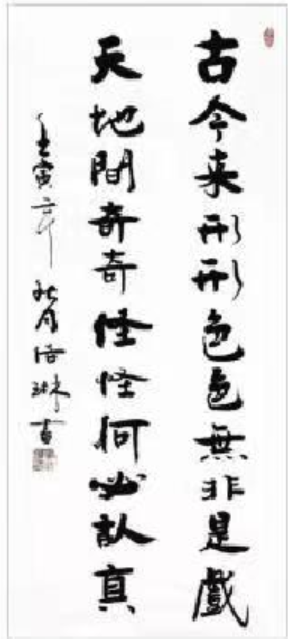 古今来形形色色無非是戲
天地間奇奇怪怪何必認真
壬寅年秋月 琳書